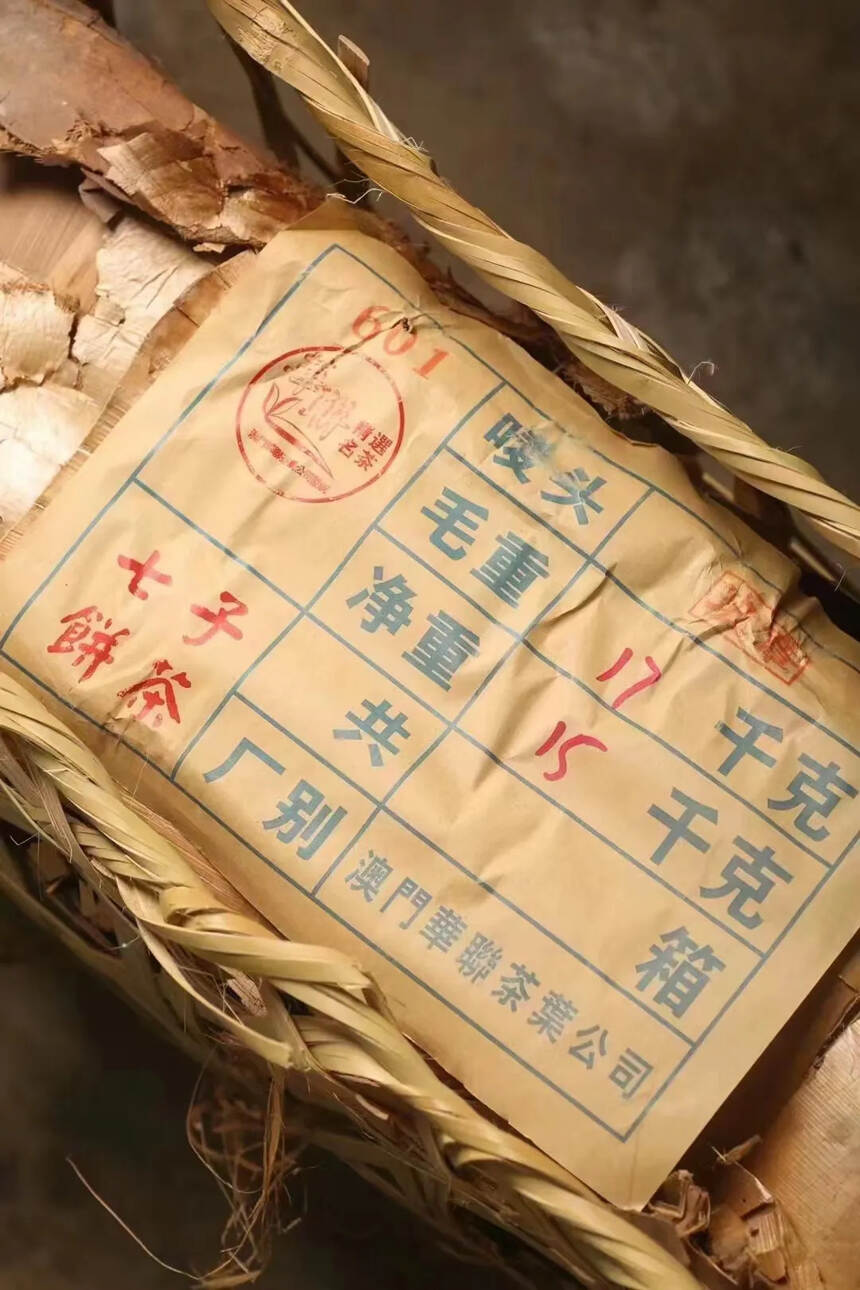 601
精選
名茶
唛头
毛重 17 千克
净重 15 千克
共 箱
厂别 澳門華聯茶葉公司
七子
餅茶